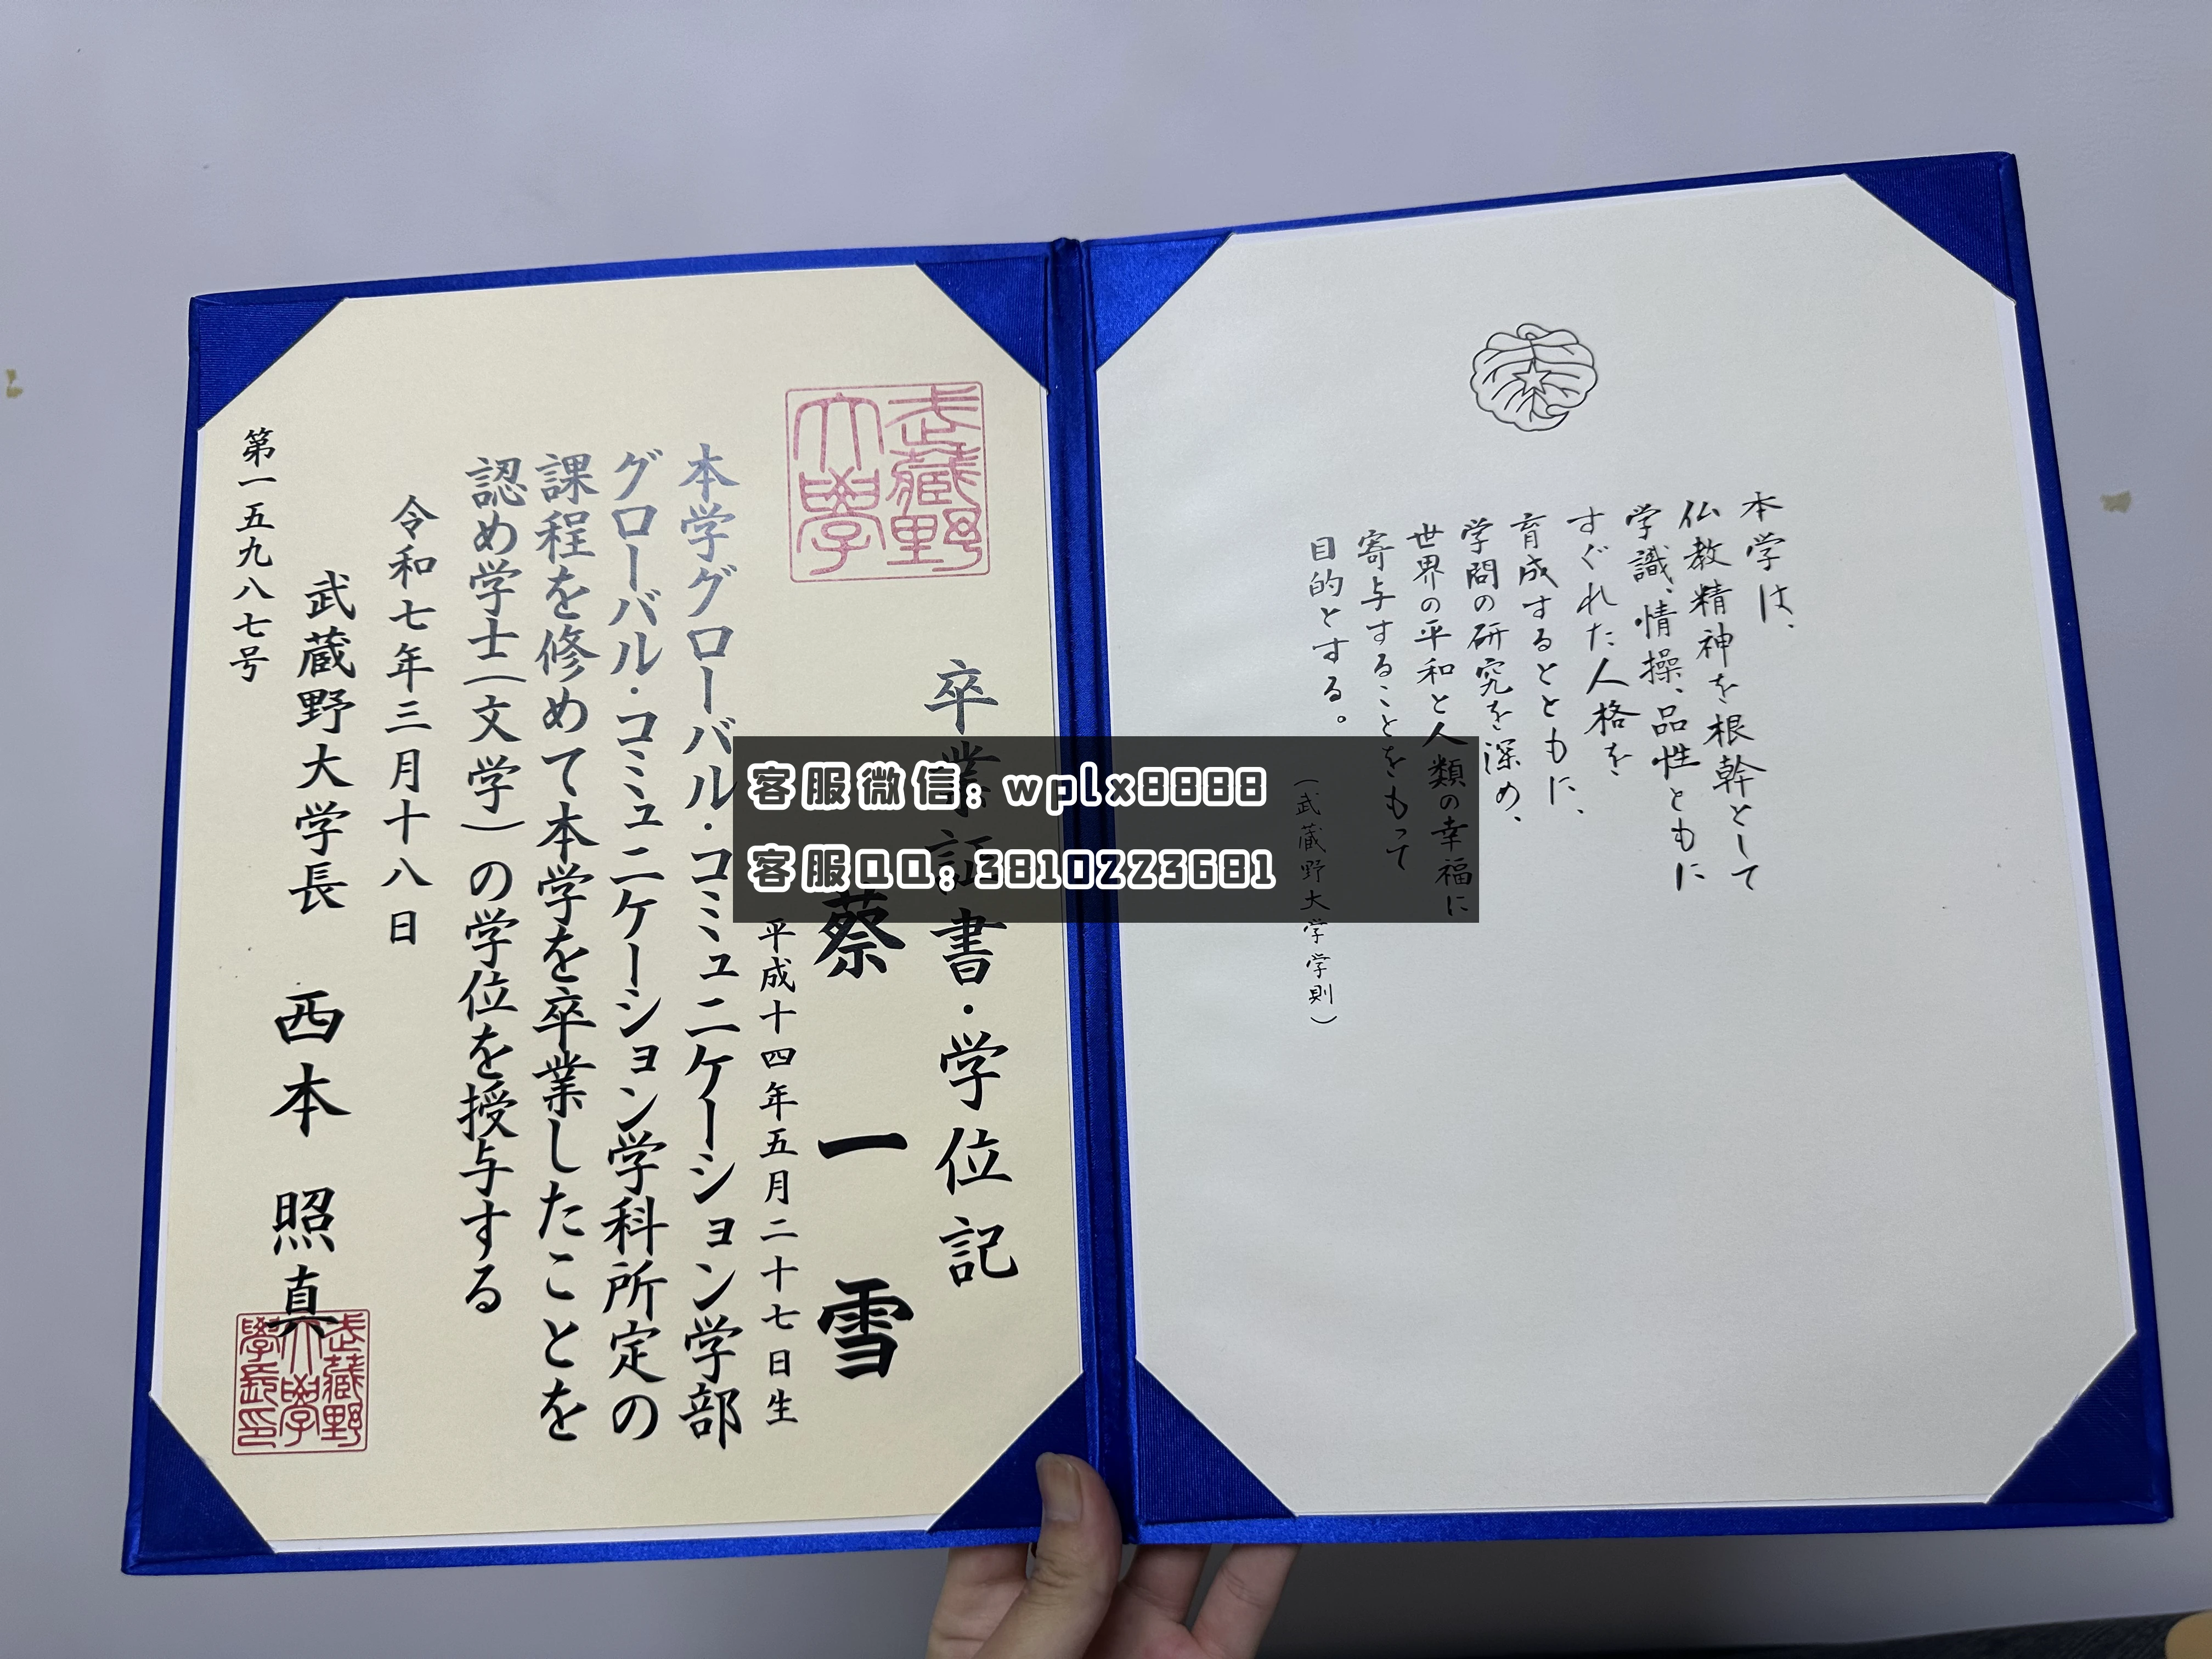 本学は、
仏教精神を根幹として
学識、情操、品性ともに
すぐれた人格を
育成するとともに、
学問の研究を深め、
世界の平和と人類の幸福に
寄与することをもって
目的とする。
(武蔵野大学学則)
武蔵野
大學
卒業証書・学位記
蔡一雪
平成十四年五月二十七日生
本学グローバル・コミュニケーション学部
グローバル・コミュニケーション学科所定の
課程を修めて本学を卒業したことを
認め学士(文学)の学位を授与する
令和七年三月十八日
武蔵野大学長 西本照真
武蔵野
大學
學長印
第一五九八七号
客服微信: wplx8888
客服QQ: 3810223681